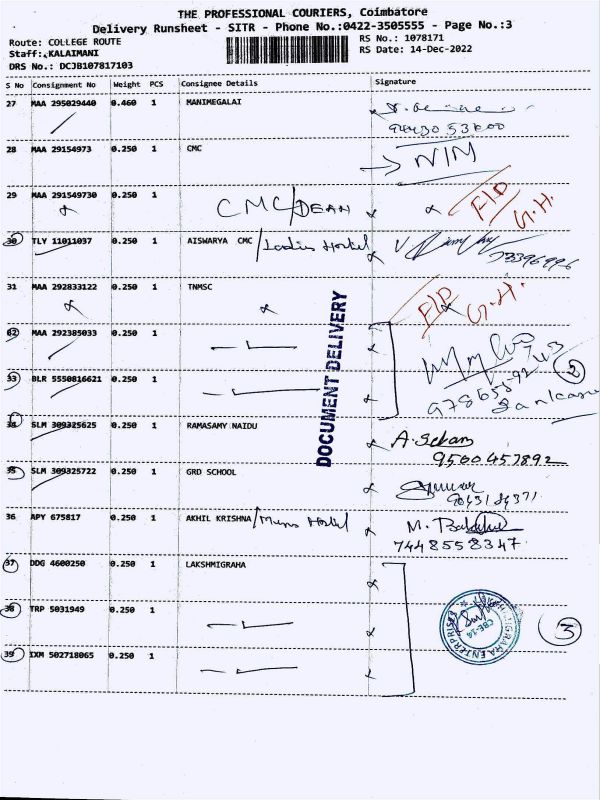 THE PROFESSIONAL COURIERS, Coimbatore
Delivery Runsheet - SITR - Phone No.:0422-3505555 - Page No.:3
Route: COLLEGE ROUTE
Staff: KALAIMANI
DRS No.: DCJB107817103
RS No.: 1078171
RS Date: 14-Dec-2022
S No Consignment No Weight PCS Consignee Details Signature
27 MAA 295029440 0.460 1 MANIMEGALAI
28 MAA 29154973 0.250 1 CMC N/M
29 MAA 291549730 0.250 1 CMC/DEAN F/D G.H.
30 TLY 11011037 0.250 1 AISWARYA CMC /Ladies Hostel
31 MAA 292833122 0.250 1 TNMSC F/D G.H.
32 MAA 292385033 0.250 1
DOCUMENT DELIVERY
33 BLR 5550816621 0.250 1 2
34 SLM 309325625 0.250 1 RAMASAMY NAIDU A. Selvam
9500457892
35 SLM 309325722 0.250 1 GRD SCHOOL
36 APY 675817 0.250 1 AKHIL KRISHNA /Mens Hostel M.
7448558347
37 DDG 4600250 0.250 1 LAKSHMIGRAHA
38 TRP 5031949 0.250 1 CBE-14 3
39 IXM 502718065 0.250 1